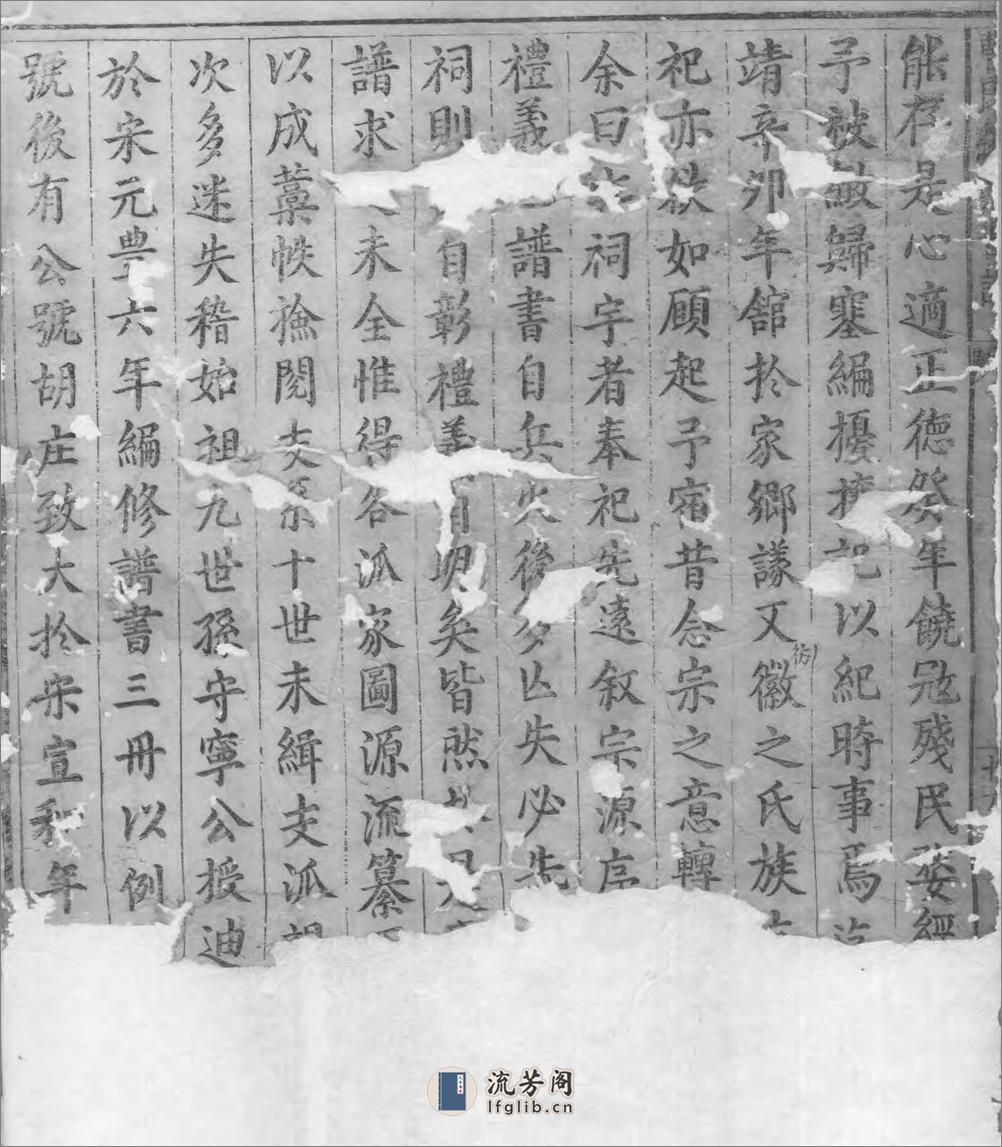 能存是心適正德癸年饒冦殘民婺經
予被歸塞編擾以紀時事焉
靖辛卯年舘扵家鄉議又徽之氏族
衍
祀亦欲如顧起予宿昔念宗之意轉
余曰祠宇者奉祀先遠叙宗源序
禮義譜書自兵火後多亾失必先
祠則自彰禮義自明矣皆然
譜求未全惟得各派家圖源流纂
以成藁帙撿閱支系十世未緝支派
次多迷失稽始祖九世孫守寧公授迪
於宋元豊六年編修譜書三冊以例
號後有公號胡庄致大扵宋宣和年
流芳阁
lfglib.cn